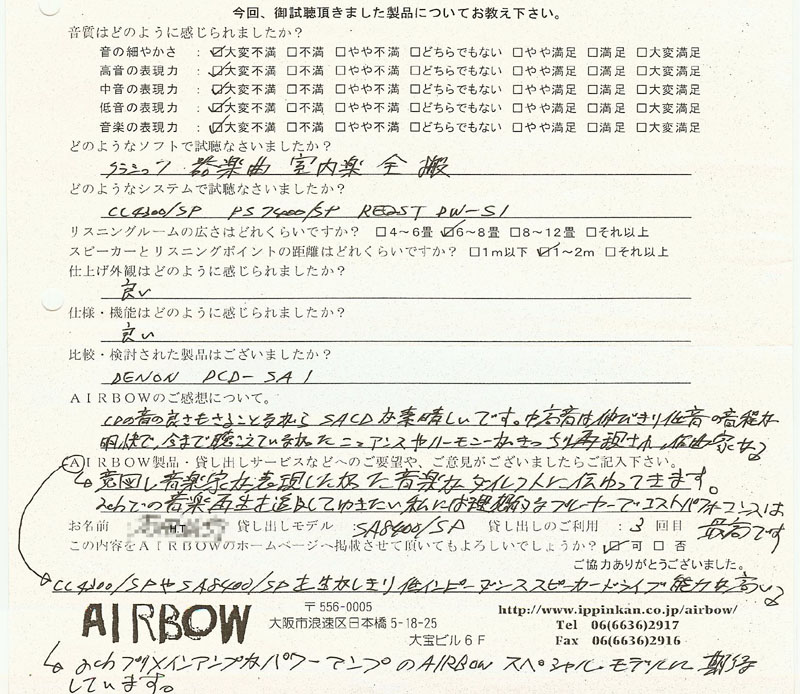 今回、御試聴頂きました製品についてお教え下さい。
音質はどのように感じられましたか?
音の細やかさ : ☑大変不満 □不満 □やや不満 □どちらでもない □やや満足 □満足 □大変満足
高音の表現力 : ☑大変不満 □不満 □やや不満 □どちらでもない □やや満足 □満足 □大変満足
中音の表現力 : ☑大変不満 □不満 □やや不満 □どちらでもない □やや満足 □満足 □大変満足
低音の表現力 : ☑大変不満 □不満 □やや不満 □どちらでもない □やや満足 □満足 □大変満足
音楽の表現力 : ☑大変不満 □不満 □やや不満 □どちらでもない □やや満足 □満足 □大変満足
どのようなソフトで試聴なさいましたか?
クラシック 器楽曲 室内楽 全般
どのようなシステムで試聴なさいましたか?
CC4300/SP PS7400/SP REQST DW-S1
リスニングルームの広さはどれくらいですか? □4~6畳 ☑6~8畳 □8~12畳 □それ以上
スピーカーとリスニングポイントの距離はどれくらいですか? □1m以下 ☑1~2m □それ以上
仕上げ外観はどのように感じられましたか?
良い
仕様・機能はどのように感じられましたか?
良い
比較・検討された製品はございましたか?
DENON DCD-SA1
AIRBOWのご感想について。
CDの音の良さもさることながら SACDが素晴しいです。中高音は伸びきり低音の音程が
明快で、今まで聴こえていなかったニュアンスやハーモニーがきっちり再現され、作曲家が
AIRBOW製品・貸し出しサービスなどへのご要望や、ご意見がございましたらご記入下さい。
意図し音楽家が表現したかった音楽がダイレクトに伝わってきます。
2chでの音楽再生を追求してゆきたい私には理想的なプレーヤーでコストパフォーマンスは
最高です
お名前 H.T 貸し出しモデル SA8400/SP 貸し出しのご利用 : 3 回目
この内容をAIRBOWのホームページへ掲載させて頂いてもよろしいでしょうか? ☑可 □否
ご協力ありがとうございました。
CC4300/SPやSA8400/SPを生かしきり低インピーダンススピーカードライブ能力が高い
AIRBOW
〒556-0005
大阪市浪速区日本橋 5-18-25
大宝ビル6F
http://www.ippinkan.co.jp/airbow/
Tel 06(6636)2917
Fax 06(6636)2916
2chプリメインアンプかパワーアンプのAIRBOWスペシャルモデルに期待
しています。